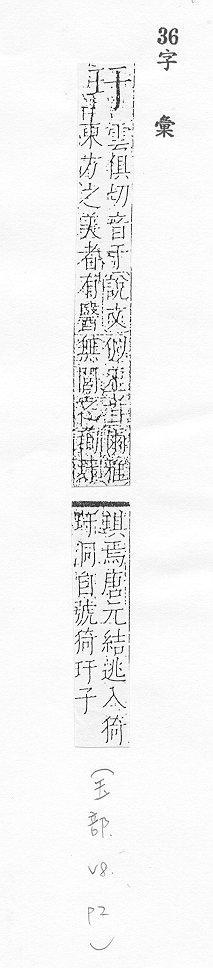 36
字彙
玗
雲俱切音于說文似玉者爾雅
東方之美者有醫無閭之珣玗
琪焉唐元結逃入猗
玗洞自號猗玗子
(玉部 v8. p2)